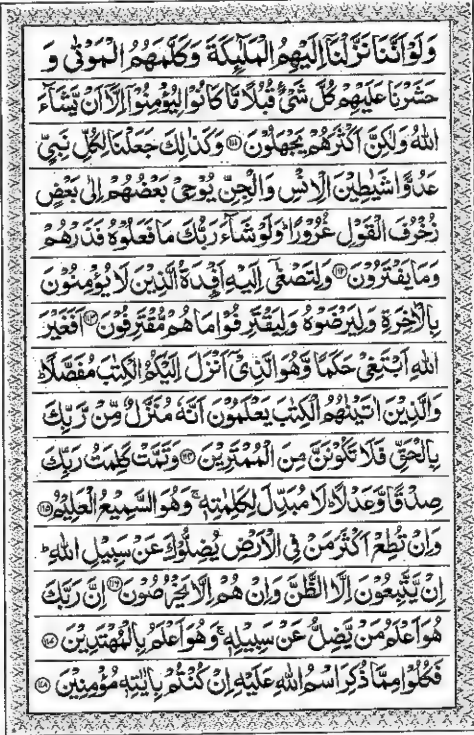 وَلَوْ اَنَّنَا نَزَّلْنَاۤ اِلَيْهِمُ الْمَلٰٓئِكَةَ وَكَلَّمَهُمُ الْمَوْتٰى وَ
حَشَرْنَا عَلَيْهِمْ كُلَّ شَيْءٍ قُبُلًا مَّا كَانُوْا لِيُؤْمِنُوْۤا اِلَّاۤ اَنْ يَّشَآءَ
اللّٰهُ وَلٰكِنَّ اَكْثَرَهُمْ يَجْهَلُوْنَ ﴿۱۱۱﴾ وَكَذٰلِكَ جَعَلْنَا لِكُلِّ نَبِيٍّ
عَدُوًّا شَيٰطِيْنَ الْاِنْسِ وَالْجِنِّ يُوْحِيْ بَعْضُهُمْ اِلٰى بَعْضٍ
زُخْرُفَ الْقَوْلِ غُرُوْرًا ؕ وَلَوْ شَآءَ رَبُّكَ مَا فَعَلُوْهُ فَذَرْهُمْ
وَمَا يَفْتَرُوْنَ ﴿۱۱۲﴾ وَلِتَصْغٰۤى اِلَيْهِ اَفْـِٕدَةُ الَّذِيْنَ لَا يُؤْمِنُوْنَ
بِالْاٰخِرَةِ وَلِيَرْضَوْهُ وَلِيَقْتَرِفُوْا مَا هُمْ مُّقْتَرِفُوْنَ ﴿۱۱۳﴾ اَفَغَيْرَ
اللّٰهِ اَبْتَغِيْ حَكَمًا وَّهُوَ الَّذِيْۤ اَنْزَلَ اِلَيْكُمُ الْكِتٰبَ مُفَصَّلًا ؕ
وَالَّذِيْنَ اٰتَيْنٰهُمُ الْكِتٰبَ يَعْلَمُوْنَ اَنَّهٗ مُنَزَّلٌ مِّنْ رَّبِّكَ
بِالْحَقِّ فَلَا تَكُوْنَنَّ مِنَ الْمُمْتَرِيْنَ ﴿۱۱۴﴾ وَتَمَّتْ كَلِمَتُ رَبِّكَ
صِدْقًا وَّعَدْلًا ؕ لَا مُبَدِّلَ لِكَلِمٰتِهٖ ۚ وَهُوَ السَّمِيْعُ الْعَلِيْمُ ﴿۱۱۵﴾
وَاِنْ تُطِعْ اَكْثَرَ مَنْ فِي الْاَرْضِ يُضِلُّوْكَ عَنْ سَبِيْلِ اللّٰهِ ؕ
اِنْ يَّتَّبِعُوْنَ اِلَّا الظَّنَّ وَاِنْ هُمْ اِلَّا يَخْرُصُوْنَ ﴿۱۱۶﴾ اِنَّ رَبَّكَ
هُوَ اَعْلَمُ مَنْ يَّضِلُّ عَنْ سَبِيْلِهٖ ۚ وَهُوَ اَعْلَمُ بِالْمُهْتَدِيْنَ ﴿۱۱۷﴾
فَكُلُوْا مِمَّا ذُكِرَ اسْمُ اللّٰهِ عَلَيْهِ اِنْ كُنْتُمْ بِاٰيٰتِهٖ مُؤْمِنِيْنَ ﴿۱۱۸﴾